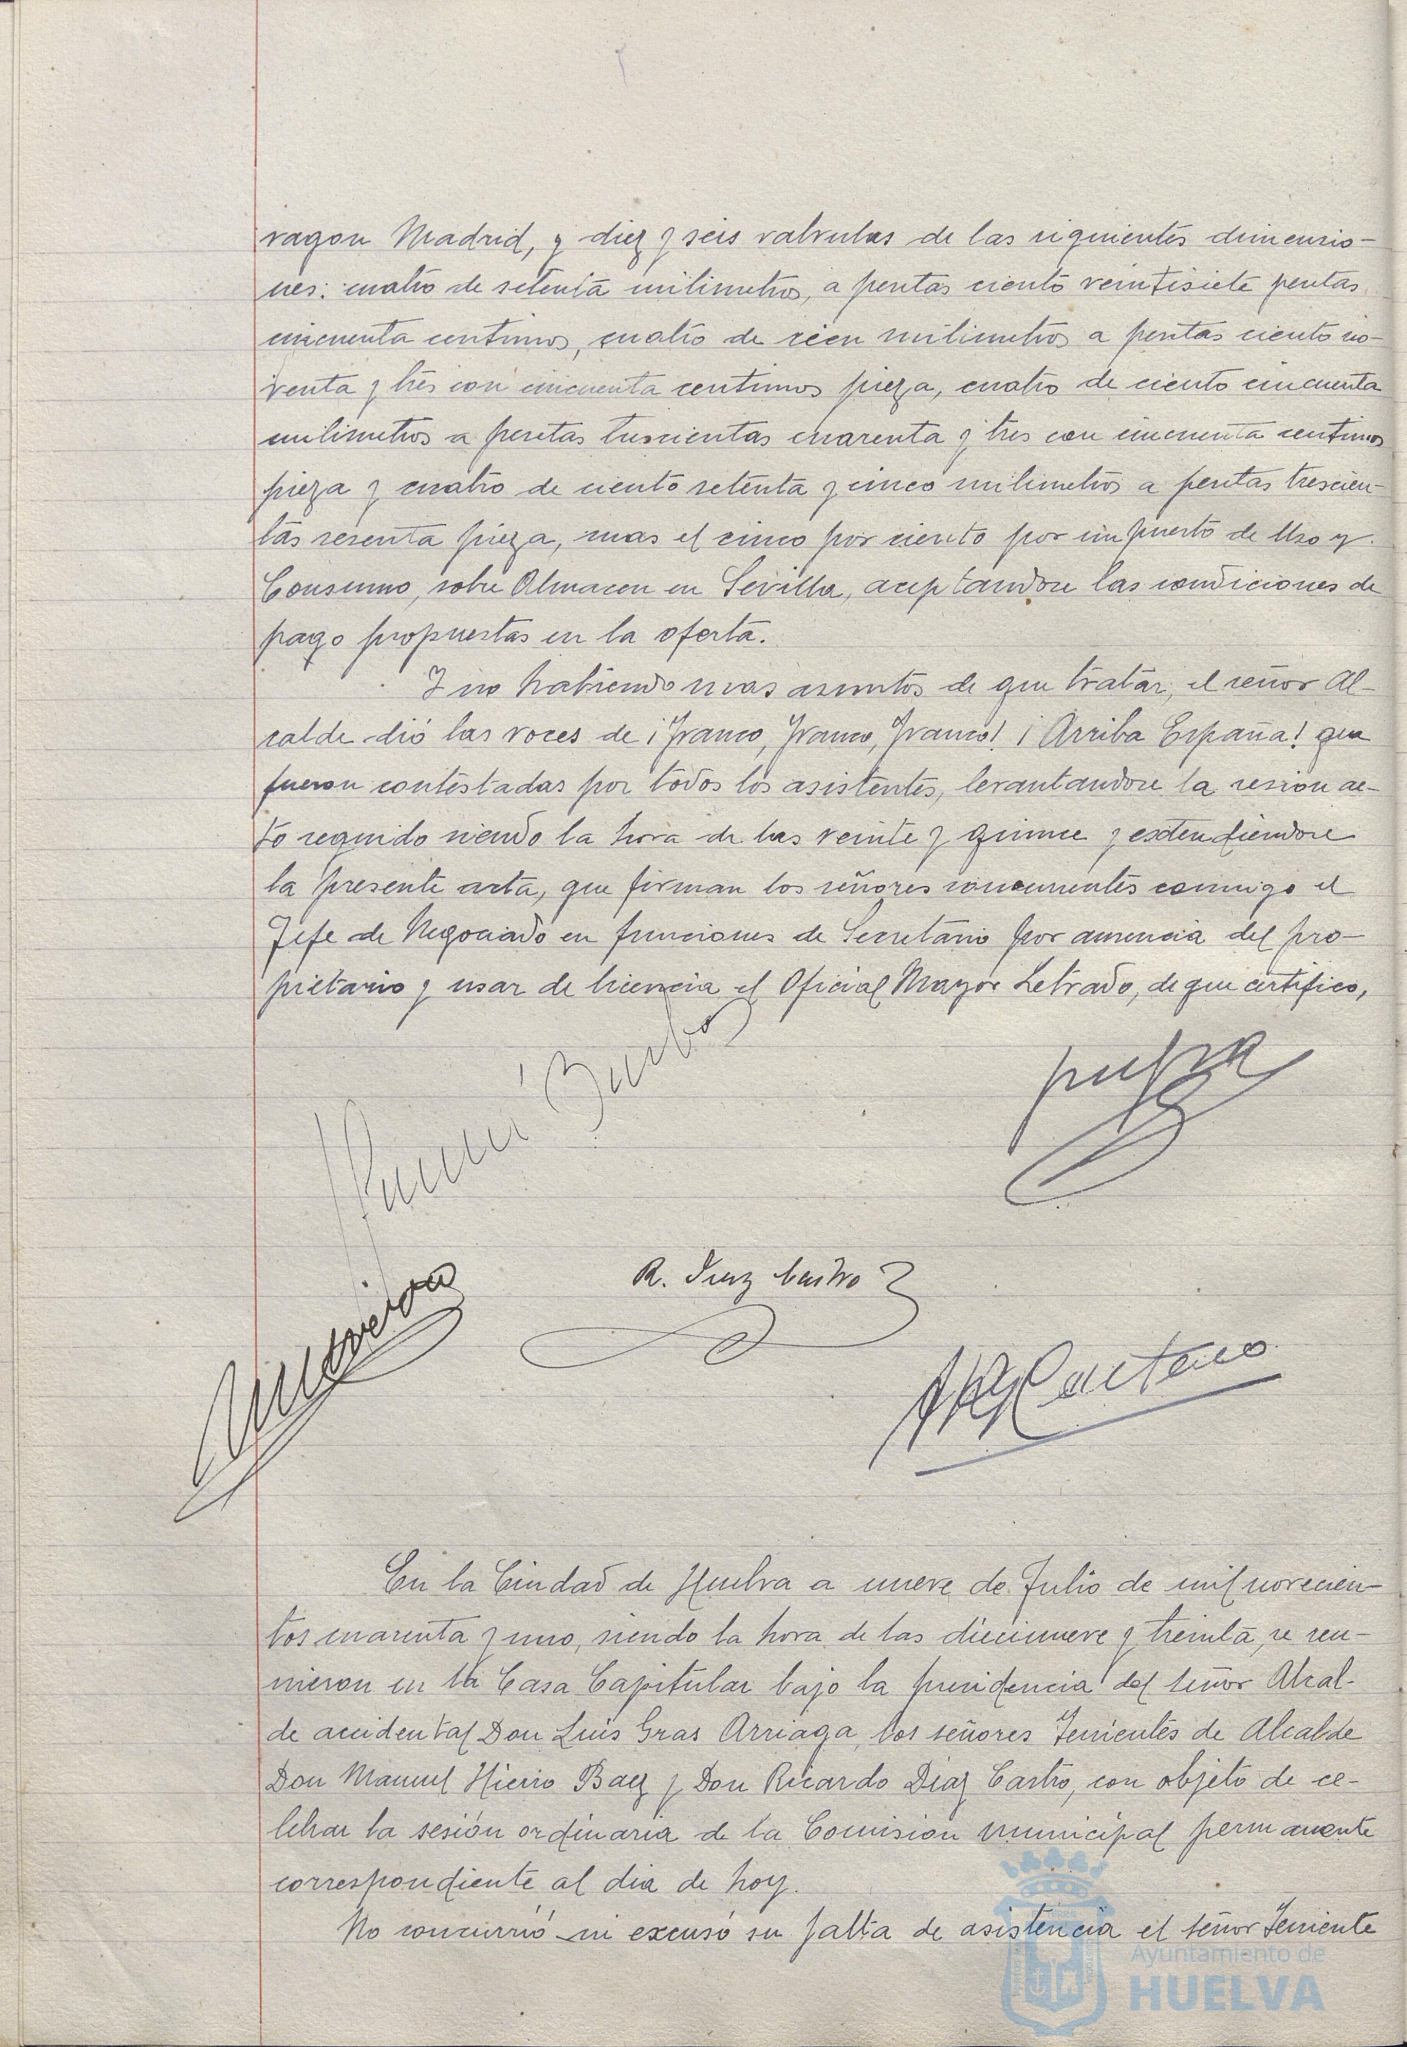 vagon Madrid, y diez y seis valvulas de las siguientes dimensio-
nes: cuatro de setenta milimetros, a pesetas ciento veintisiete pesetas
cincuenta centimos, cuatro de cien milimetros a pesetas ciento no-
venta y tres con cincuenta centimos pieza, cuatro de ciento cincuenta
milimetros a pesetas trescientas cuarenta y tres con cincuenta centimos
pieza y cuatro de ciento setenta y cinco milimetros a pesetas trescien-
tas sesenta pieza, mas el cinco por ciento por impuesto de Uso y
Consumo, sobre Almacen en Sevilla, aceptandose las condiciones de
pago propuestas en la oferta.
Y no habiendo mas asuntos de que tratar, el señor Al-
calde dió las voces de ¡Franco, Franco, Franco! ¡Arriba España! que
fueron contestadas por todos los asistentes, levantandose la sesion ac-
to seguido siendo la hora de las veinte y quince y extendiendose
la presente acta, que firman los señores concurrentes conmigo el
Jefe de Negociado en funciones de Secretario por ausencia del pro-
pietario y usar de licencia el Oficial Mayor Letrado, de que certifico,
R. Diaz Castro
En la Ciudad de Huelva a nueve de Julio de mil novecien-
tos cuarenta y uno, siendo la hora de las diecinueve y treinta, se reu-
nieron en la Casa Capitular bajo la presidencia del señor Alcal-
de accidental Don Luis Gras Arriaga, los señores Tenientes de Alcalde
Don Manuel Hierro Baez y Don Ricardo Diaz Castro, con objeto de ce-
lebrar la sesión ordinaria de la Comision municipal permanente
correspondiente al dia de hoy.
No concurrió ni excusó su falta de asistencia el señor Teniente
Ayuntamiento de
HUELVA